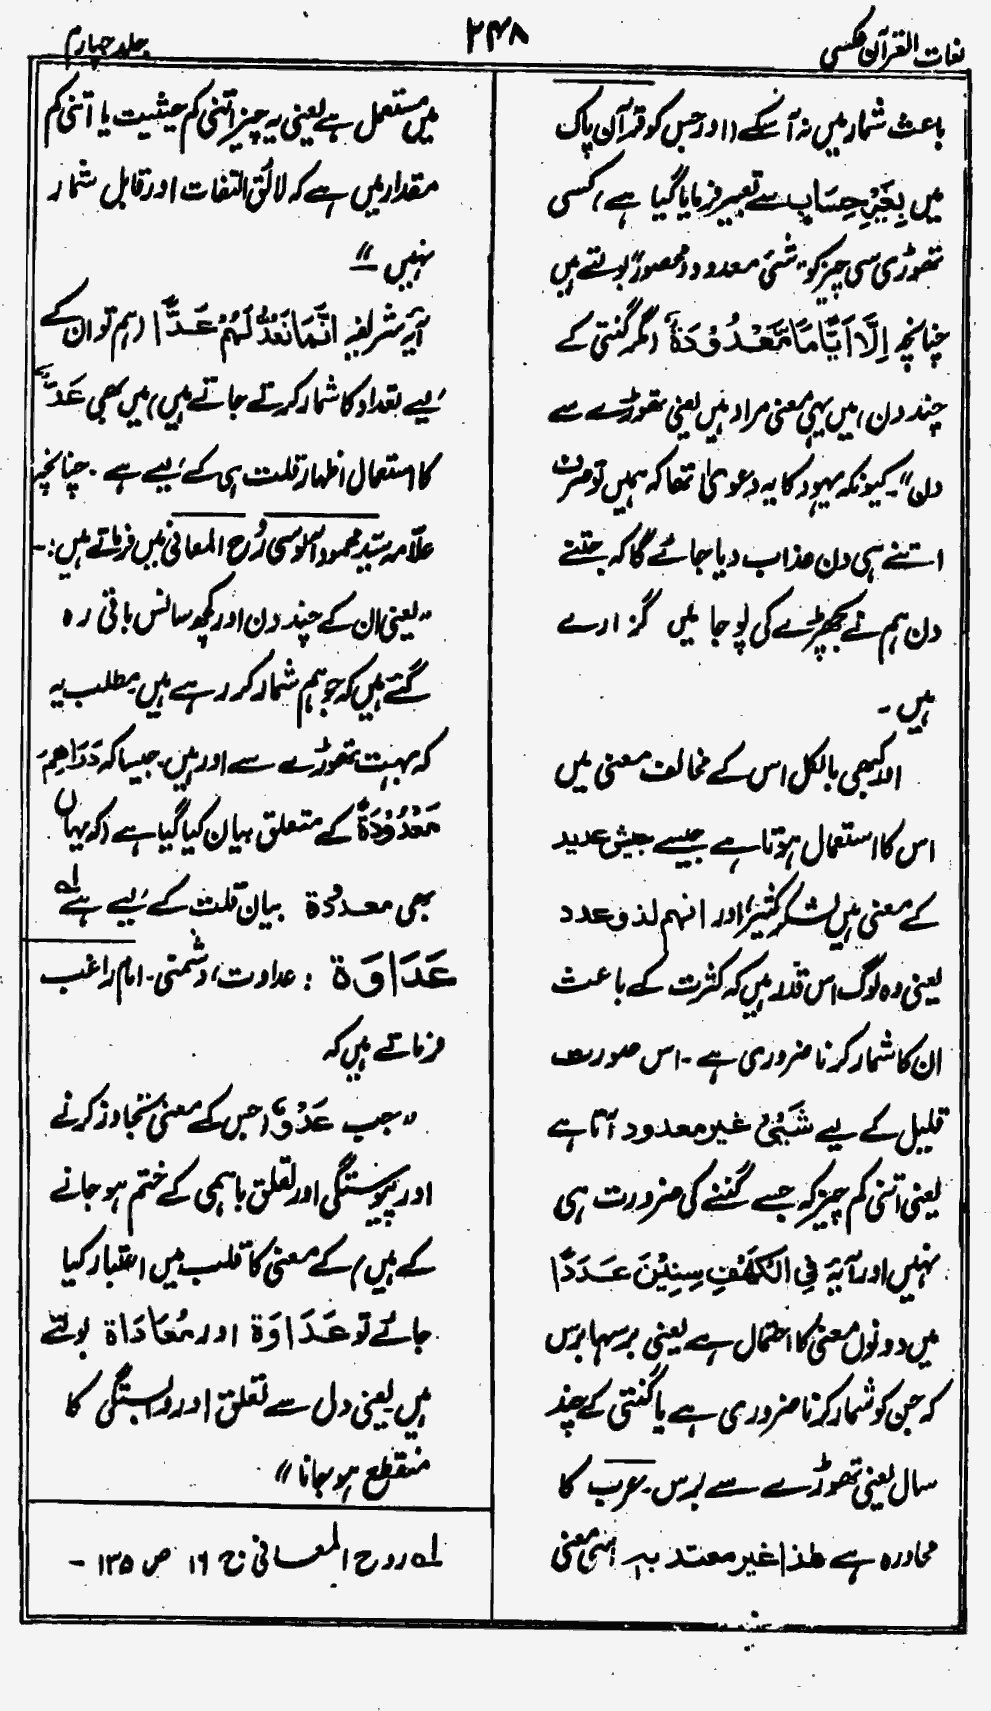 لغات القرآن عکسی
۲۴۸
جلد چہارم
باعث شمار میں نہ آسکے (اور جس کو قرآن پاک
میں بِغَيْرِ حِسَابٍ سے تعبیر فرمایا گیا ہے) کسی
تھوڑی سی چیز کو "شئی معدود و محصور" بولتے ہیں
چنانچہ اِلَّا اَيَّامًا مَّعْدُوْدَةً (مگر گنتی کے
چند دن) میں یہی معنی مراد ہیں یعنی تھوڑے سے
دن" کیونکہ یہود کا یہ دعویٰ تھا کہ ہمیں تو صرف
اتنے ہی دن عذاب دیا جائے گا کہ جتنے
دن ہم نے بچھڑے کی پوجا میں گزارے
ہیں۔
اور کبھی بالکل اس کے مخالف معنی میں
اس کا استعمال ہوتا ہے جیسے جیش عدید
کے معنی ہیں لشکر کثیر، اور انهم لذو عدد
یعنی وہ لوگ اس قدر ہیں کہ کثرت کے باعث
ان کا شمار کرنا ضروری ہے۔ اس صورت
قلیل کے لیے شَیْئٌ غیر معدود آتا ہے
یعنی اتنی کم چیز کہ جسے گننے کی ضرورت ہی
نہیں اور آیہ فِي الْكَهْفِ سِنِيْنَ عَدَدًا
میں دونوں معنی کا احتمال ہے یعنی برسہا برس
کہ جن کو شمار کرنا ضروری ہے یا گنتی کے چند
سال یعنی تھوڑے سے برس۔ عرب کا
محاورہ ہے هذا غير معتد به اسی معنی
میں مستعمل ہے یعنی یہ چیز اتنی کم حیثیت یا اتنی کم
مقدار میں ہے کہ لائق التفات اور قابل شمار
نہیں"
آیہ شریفہ اِنَّمَا نَعُدُّ لَهُمْ عَدًّا (ہم تو ان کے
لیے تعداد کا شمار کرتے جاتے ہیں) میں بھی عَدٌّ
کا استعمال اظہار قلت ہی کے لیے ہے۔ چنانچہ
علّامہ سیّد محمود آلوسی رُوح المعانی میں فرماتے ہیں:۔
"یعنی ان کے چند دن اور کچھ سانس باقی رہ
گئے ہیں کہ جو ہم شمار کر رہے ہیں مطلب یہ
کہ بہت تھوڑے سے اور ہیں۔ جیسا کہ دَرَاهِمَ
مَعْدُوْدَةً کے متعلق بیان کیا گیا ہے (کہ یہاں
بھی معدودة بیان قلت کے لیے ہے ؎۱
عَدَاوَة : عداوت، دشمنی۔ امام راغب
فرماتے ہیں کہ
"جب عَدْوٌ (جس کے معنی تجاوز کرنے
اور پیوستگی اور تعلق باہمی کے ختم ہو جانے
کے ہیں) کے معنی کا قلب میں اعتبار کیا
جائے تو عَدَاوَة اور مُعَادَاة بولتے
ہیں یعنی دل سے تعلق اور وابستگی کا
منقطع ہو جانا"
؎۱ روح المعانی ج ۱۶ ص ۱۳۵۔